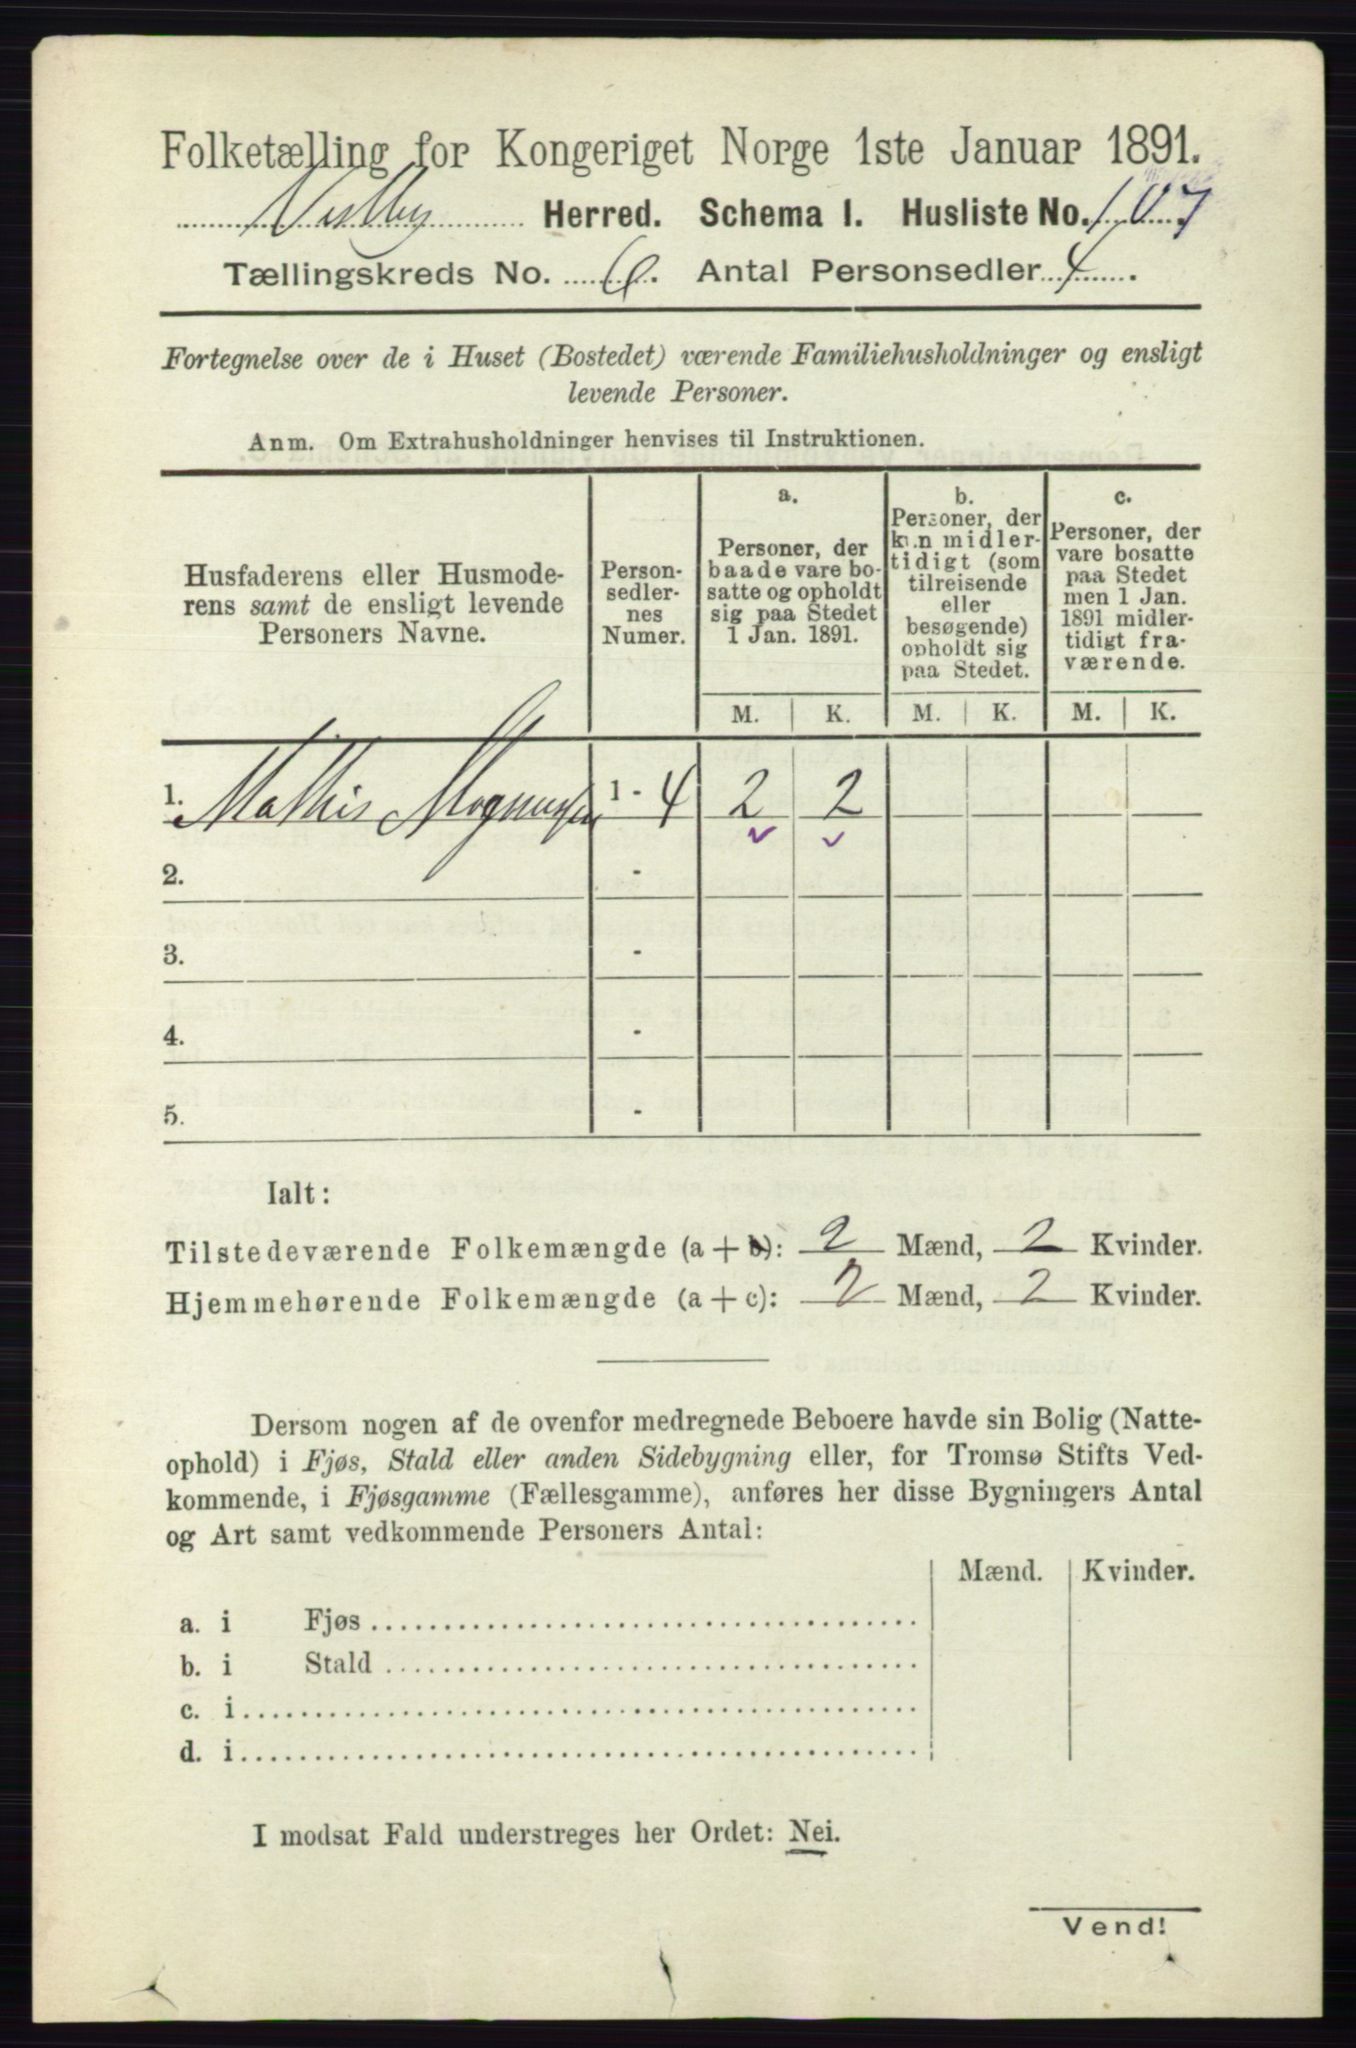 Folketælling for Kongeriget Norge 1ste Januar 1891.
Vestby Herred. Schema I. Husliste No. 107
Tællingskreds No. 6. Antal Personsedler 4.
Fortegnelse over de i Huset (Bostedet) værende Familiehusholdninger og ensligt
levende Personer.
Anm. Om Extrahusholdninger henvises til Instruktionen.
Husfaderens eller Husmode-
rens samt de ensligt levende
Personers Navne.
Person-
sedler-
nes
Numer.
a.
Personer, der
baade vare bo-
satte og opholdt
sig paa Stedet
1 Jan. 1891.
b.
Personer, der
kun midler-
tidigt (som
tilreisende
eller
besøgende)
opholdt sig
paa Stedet.
c.
Personer, der
vare bosatte
paa Stedet
men 1 Jan.
1891 midler-
tidigt fra-
værende.
M. K. M. K. M. K.
1. Mathis Magnussen 1 - 4 2 2
2. -
3. -
4. -
5. -
Ialt:
Tilstedeværende Folkemængde (a + b): 2 Mænd, 2 Kvinder.
Hjemmehørende Folkemængde (a + c): 2 Mænd, 2 Kvinder.
Dersom nogen af de ovenfor medregnede Beboere havde sin Bolig (Natte-
ophold) i Fjøs, Stald eller anden Sidebygning eller, for Tromsø Stifts Ved-
kommende, i Fjøsgamme (Fællesgamme), anføres her disse Bygningers Antal
og Art samt vedkommende Personers Antal:
Mænd. Kvinder.
a. i Fjøs
b. i Stald
c. i
d. i
I modsat Fald understreges her Ordet: Nei.
Vend!